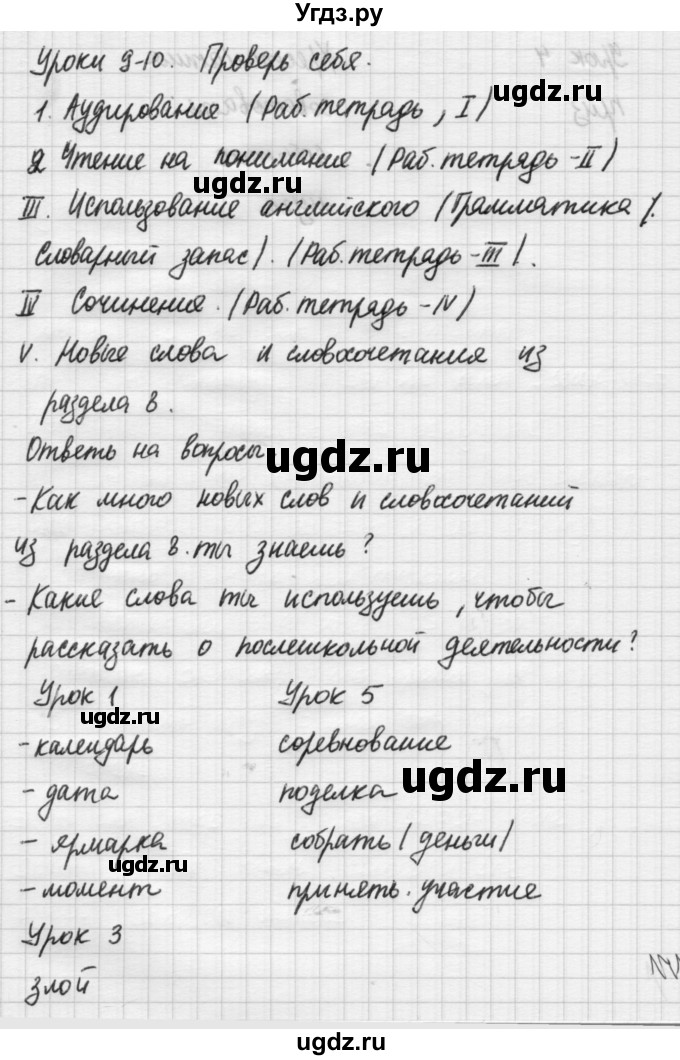 Угдз.ру
Уроки 9-10. Проверь себя.
1. Аудирование (Раб.тетрадь, I)
2 Чтение на понимание. (Раб.тетрадь-II)
III. Использование английского (Грамматика /.
Словарный запас). (Раб.тетрадь-III).
IV Сочинения. (Раб.тетрадь-IV)
V. Новые слова и словосочетания из
раздела 8.
Ответь на вопросы
-Как много новых слов и словосочетаний
из раздела 8. ты знаешь?
- Какие слова ты используешь, чтобы
рассказать о послешкольной деятельности?
Урок 1 Урок 5
-календарь соревнование
- дата поделка
- ярмарка собрать (деньги)
- момент принять участие
Урок 3
злой
ugdz.ru
ugdz.ru
ugdz.ru
ugdz.ru
ugdz.ru
ugdz.ru
ugdz.ru
ugdz.ru